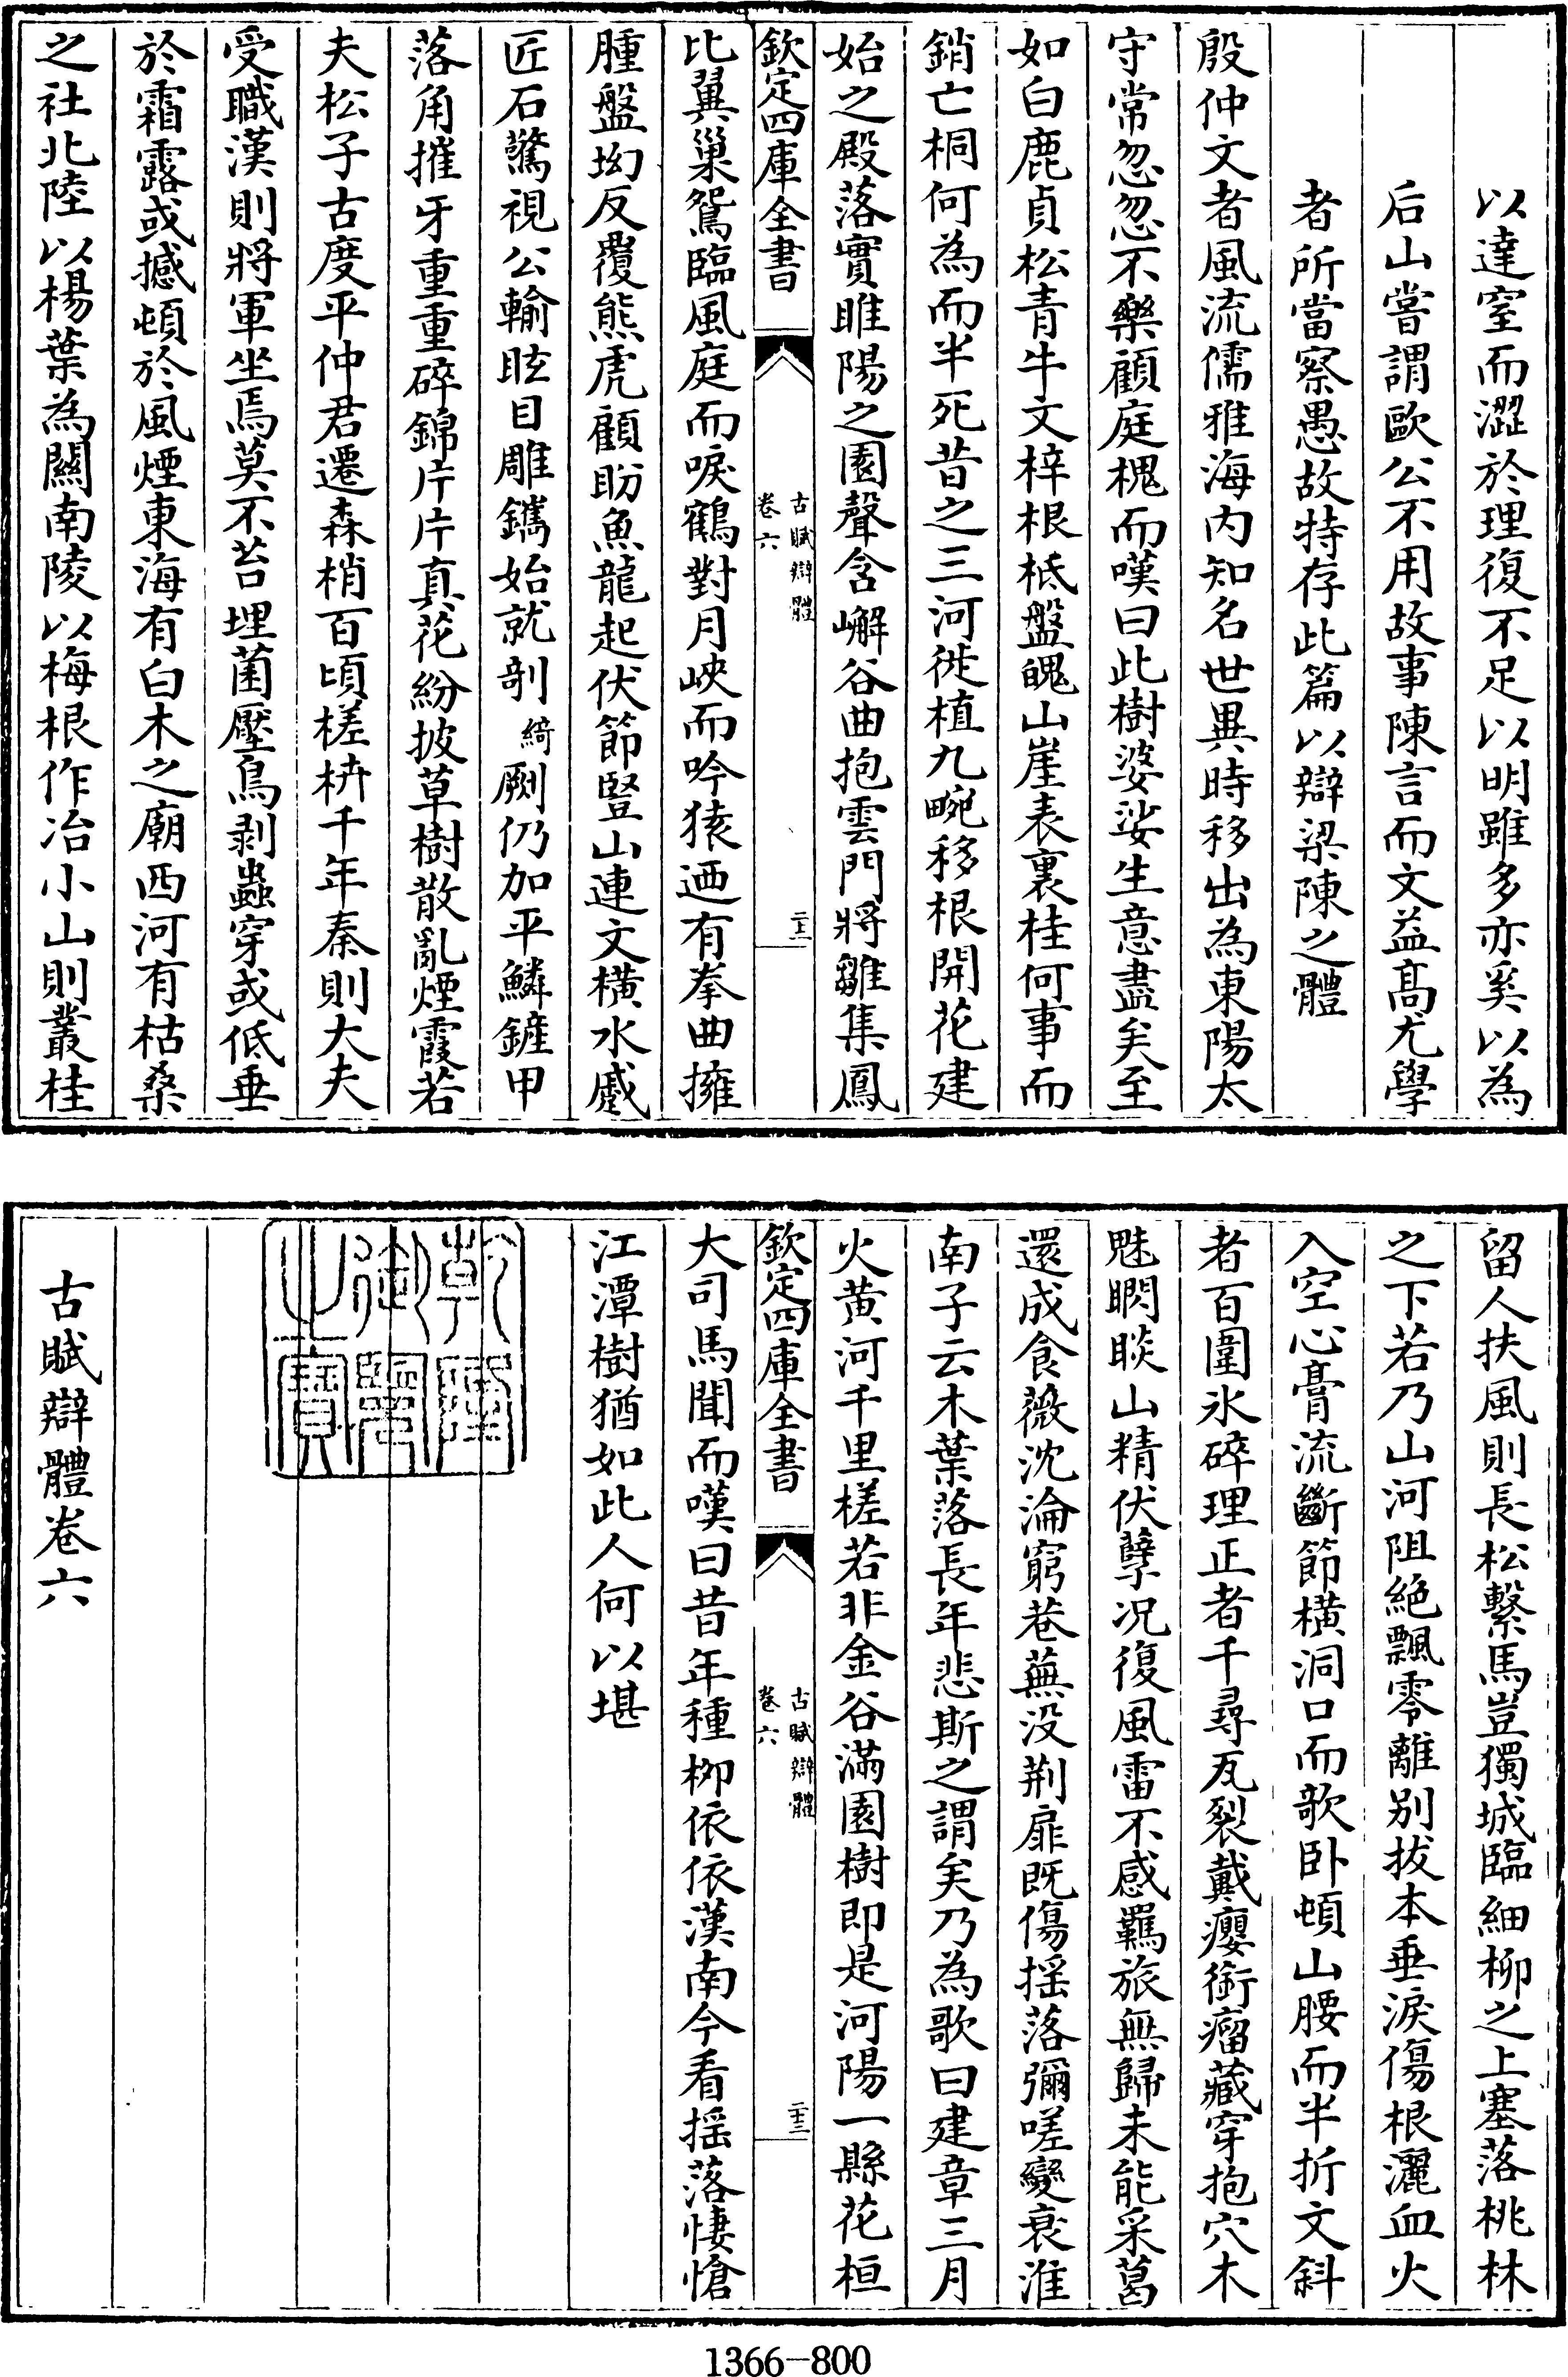 以達窒而澀於理復不足以明雖多亦奚以為
后山嘗謂歐公不用故事陳言而文益髙尤學
者所當察愚故特存此篇以辯梁陳之體
殷仲文者風流儒雅海内知名世異時移出為東陽太
守常忽忽不樂顧庭槐而嘆曰此樹婆娑生意盡矣至
如白鹿貞松青牛文梓根柢盤魄山崖表裏桂何事而
銷亡桐何為而半死昔之三河徙植九畹移根開花建
始之殿落實睢陽之園聲含嶰谷曲抱雲門將雛集鳳
欽定四庫全書
古賦辯體
卷六
二十二
比翼巢鴛臨風庭而唳鶴對月峽而吟猿迺有拳曲擁
腫盤坳反覆熊虎顧盼魚龍起伏節豎山連文橫水蹙
匠石驚視公輸眩目雕鐫始就剞綺劂仍加平鱗鏟甲
落角摧牙重重碎錦片片真花紛披草樹散亂煙霞若
夫松子古度平仲君遷森梢百頃槎枿千年秦則大夫
受職漢則將軍坐焉莫不苔埋菌壓鳥剥蟲穿或低垂
於霜露或撼頓於風煙東海有白木之廟西河有枯桑
之社北陸以楊葉為關南陵以梅根作冶小山則叢桂
留人扶風則長松繫馬豈獨城臨細柳之上塞落桃林
之下若乃山河阻絶飄零離别拔本垂淚傷根灑血火
入空心膏流斷節橫洞口而歌卧頓山腰而半折文斜
者百圍氷碎理正者千尋瓦裂戴癭銜瘤藏穿抱穴木
魅瞯睒山精伏孽况復風雷不感羈旅無歸未能采葛
還成食薇沈淪窮巷蕪没荆扉既傷揺落彌嗟變衰淮
南子云木葉落長年悲斯之謂矣乃為歌曰建章三月
火黄河千里槎若非金谷滿園樹即是河陽一縣花桓
欽定四庫全書
古賦辯體
卷六
二十三
大司馬聞而嘆曰昔年種栁依依漢南今看揺落悽愴
江潭樹猶如此人何以堪
乾隆御覽之寶
古賦辯體卷六
1366-800